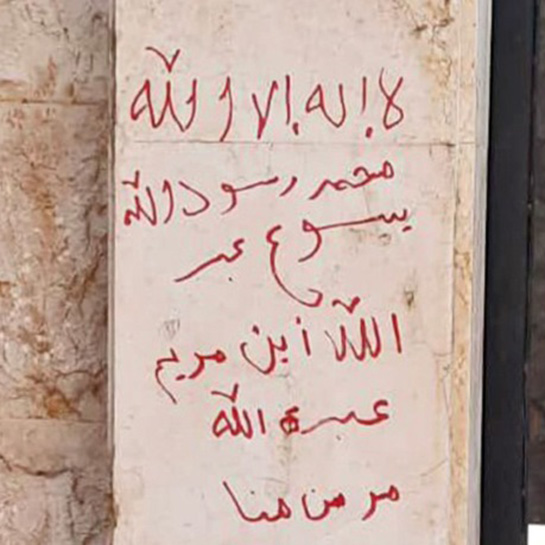 لا إله إلا الله
محمد رسول الله
يسوع عبد
الله أبن مريم
عبده الله
مر من هنا